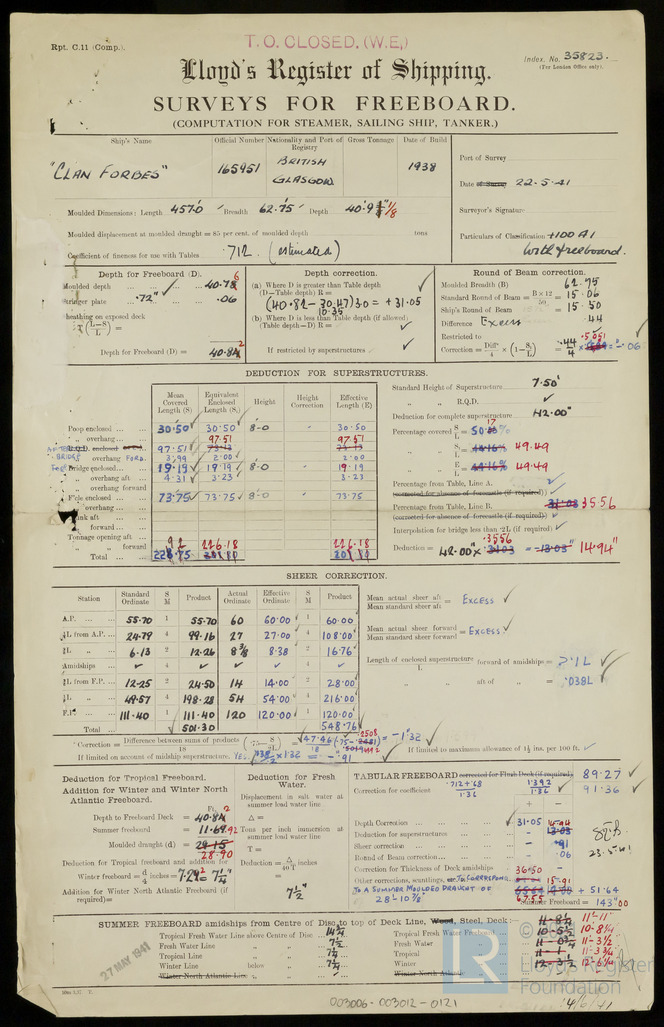 Rpt. C.11 (Comp.).
T. O. CLOSED. (W.E.)
Index. No. 35823.
(For London Office only).
Lloyd's Register of Shipping.
SURVEYS FOR FREEBOARD.
(COMPUTATION FOR STEAMER, SAILING SHIP, TANKER.)
Ship's Name
Official Number
Nationality and Port of Registry
Gross Tonnage
Date of Build
"CLAN FORBES"
165951
BRITISH
GLASGOW
1938
Port of Survey
Date of Survey 22.5.41
Surveyor's Signature
Particulars of Classification +100 A1
With freeboard.
Moulded Dimensions: Length 457.0 Breadth 62.75 Depth 40.9
Moulded displacement at moulded draught = 85 per cent. of moulded depth tons
Coefficient of fineness for use with Tables .712 (estimated)
Depth for Freeboard (D).
Moulded depth 40.76
Stringer plate .72" .06
Sheathing on exposed deck
Depth for Freeboard (D) = 40.82
Depth correction.
(a) Where D is greater than Table depth
(D—Table depth) R =
(40.82 - 30.47) 30 = + 31.05
10.35
(b) Where D is less than Table depth (if allowed)
(Table depth—D) R =
If restricted by superstructures
Round of Beam correction.
Moulded Breadth (B) 62.75
Standard Round of Beam = B × 12 / 50 = 15.06
Ship's Round of Beam = 15.50
Difference Excess .44
Restricted to
Correction = Diff. / 4 × (1 — S₁/L) = .44/4 × .5051 = -.06
DEDUCTION FOR SUPERSTRUCTURES.
Mean Covered Length (S)
Equivalent Enclosed Length (S₁)
Height
Height Correction
Effective Length (E)
Poop enclosed 30.50 30.50 8-0 30.50
overhang 97.51 97.51
97.51
overhang FORD. 3.99 2.00 2.00
Bridge enclosed 19.19 19.19 8-0 19.19
overhang aft 4.31 3.23 3.23
overhang forward
F'cle enclosed 73.75 73.75 8-0 73.75
Trunk aft
forward
Tonnage opening aft
forward
Total 226.18 226.18
Standard Height of Superstructure 7.50'
" " R.Q.D.
Deduction for complete superstructure 42.00"
Percentage covered S/L = 50.17%
" S₁/L = 49.49
" E/L = 49.49
Percentage from Table, Line A.
(corrected for absence of forecastle (if required))
Percentage from Table, Line B. 35.56
(corrected for absence of forecastle (if required))
Interpolation for bridge less than .2L (if required)
Deduction = 42.00" × .3556 = 14.94"
SHEER CORRECTION.
Station
Standard Ordinate
S M
Product
Actual Ordinate
Effective Ordinate
S M
Product
A.P. 55.70 1 55.70 60 60.00 1 60.00
⅙L from A.P. 24.79 4 99.16 27 27.00 4 108.00
⅓L " 6.13 2 12.26 8⅜ 8.38 2 16.76
Amidships 4 4
⅓L from F.P. 12.25 2 24.50 14 14.00 2 28.00
⅙L " 49.57 4 198.28 54 54.00 4 216.00
F.P. 111.40 1 111.40 120 120.00 1 120.00
Total 501.30 548.76
Mean actual sheer aft / Mean standard sheer aft = EXCESS
Mean actual sheer forward / Mean standard sheer forward = EXCESS
Length of enclosed superstructure forward of amidships / L = >.1L
" aft of " = .038L
Correction = Difference between sums of products / 18 (.75 — S/2L) = 47.46/18 (.75 - .2508) = -1.32
If limited on account of midship superstructure. YES. × 1.32 = -.91
If limited to maximum allowance of 1½ ins. per 100 ft.
Deduction for Tropical Freeboard.
Addition for Winter and Winter North Atlantic Freeboard.
Ft.
Depth to Freeboard Deck = 40.82
Summer freeboard = 11.92
Moulded draught (d) = 28.90
Deduction for Tropical freeboard and addition for
Winter freeboard = d/4 inches = 7¼"
Addition for Winter North Atlantic Freeboard (if required) =
Deduction for Fresh Water.
Displacement in salt water at summer load water line
Δ =
Tons per inch immersion at summer load water line
T =
Deduction = Δ / 40 T inches =
7½"
TABULAR FREEBOARD corrected for Flush Deck (if required) 89.27
Correction for coefficient .712+.68 / 1.36 1.392 / 1.36 91.36
+ -
Depth Correction 31.05
Deduction for superstructures 14.94
Sheer correction .91
Round of Beam correction .06
Correction for Thickness of Deck amidships
Other corrections, scantlings, TO CORRESPOND 36.50
TO A SUMMER MOULDED DRAUGHT OF 28-10⅞" 67.55 15.91 + 51.64
Summer Freeboard = 143.00
23.5.41
SUMMER FREEBOARD amidships from Centre of Disc to top of Deck Line, Wood, Steel, Deck:—
Tropical Fresh Water Line above Centre of Disc
Fresh Water Line " " 7½
Tropical Line " " 7¼
Winter Line below " 7¼
Winter North Atlantic Line " "
Tropical Fresh Water Freeboard
Fresh Water "
Tropical "
Winter "
Winter North Atlantic "
11-11"
10-8¼"
11-3½"
11-3¾"
12-6¼"
27 MAY 1941
003006-003012-0121
LR
© Lloyd's Register Foundation